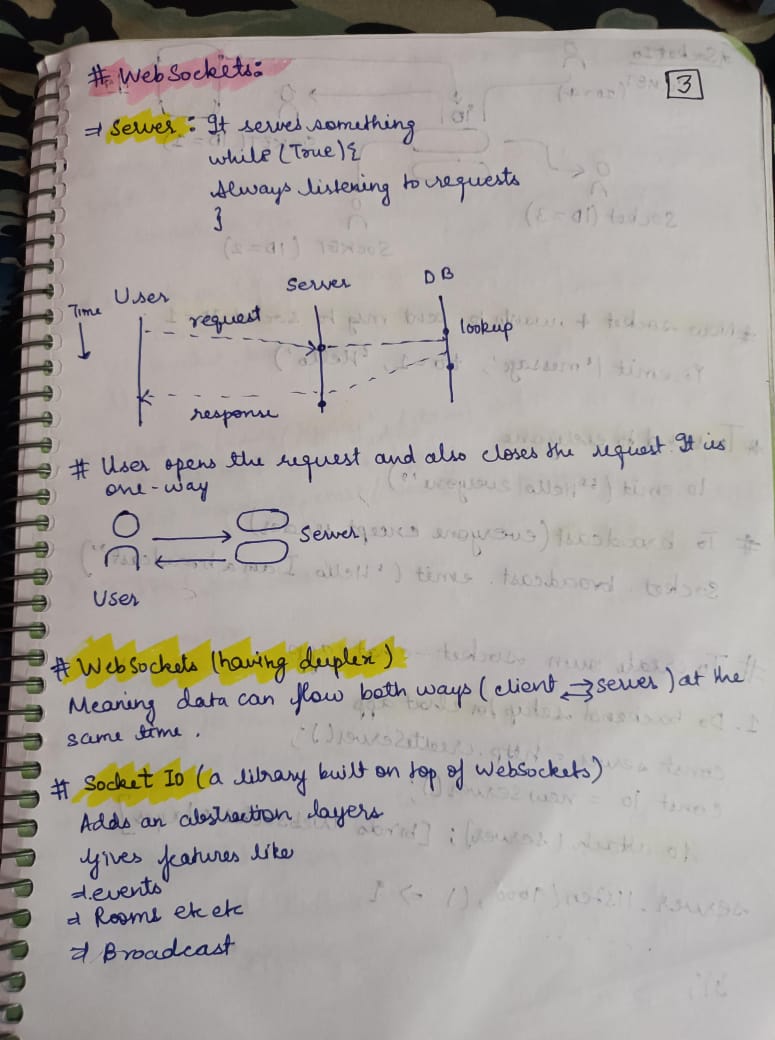 # WebSockets:
3
⇒ Server : It serves something
while (True) {
Always listening to requests
}
Time
User
Server
DB
request
lookup
response
# User opens the request and also closes the request. It is
one-way
Server
User
# WebSockets (having duplex)
Meaning data can flow both ways (client ⇄ server) at the
same time.
# Socket IO (a library built on top of WebSockets)
Adds an abstraction layers
Gives features like
⇒ events
⇒ Rooms etc etc
⇒ Broadcast